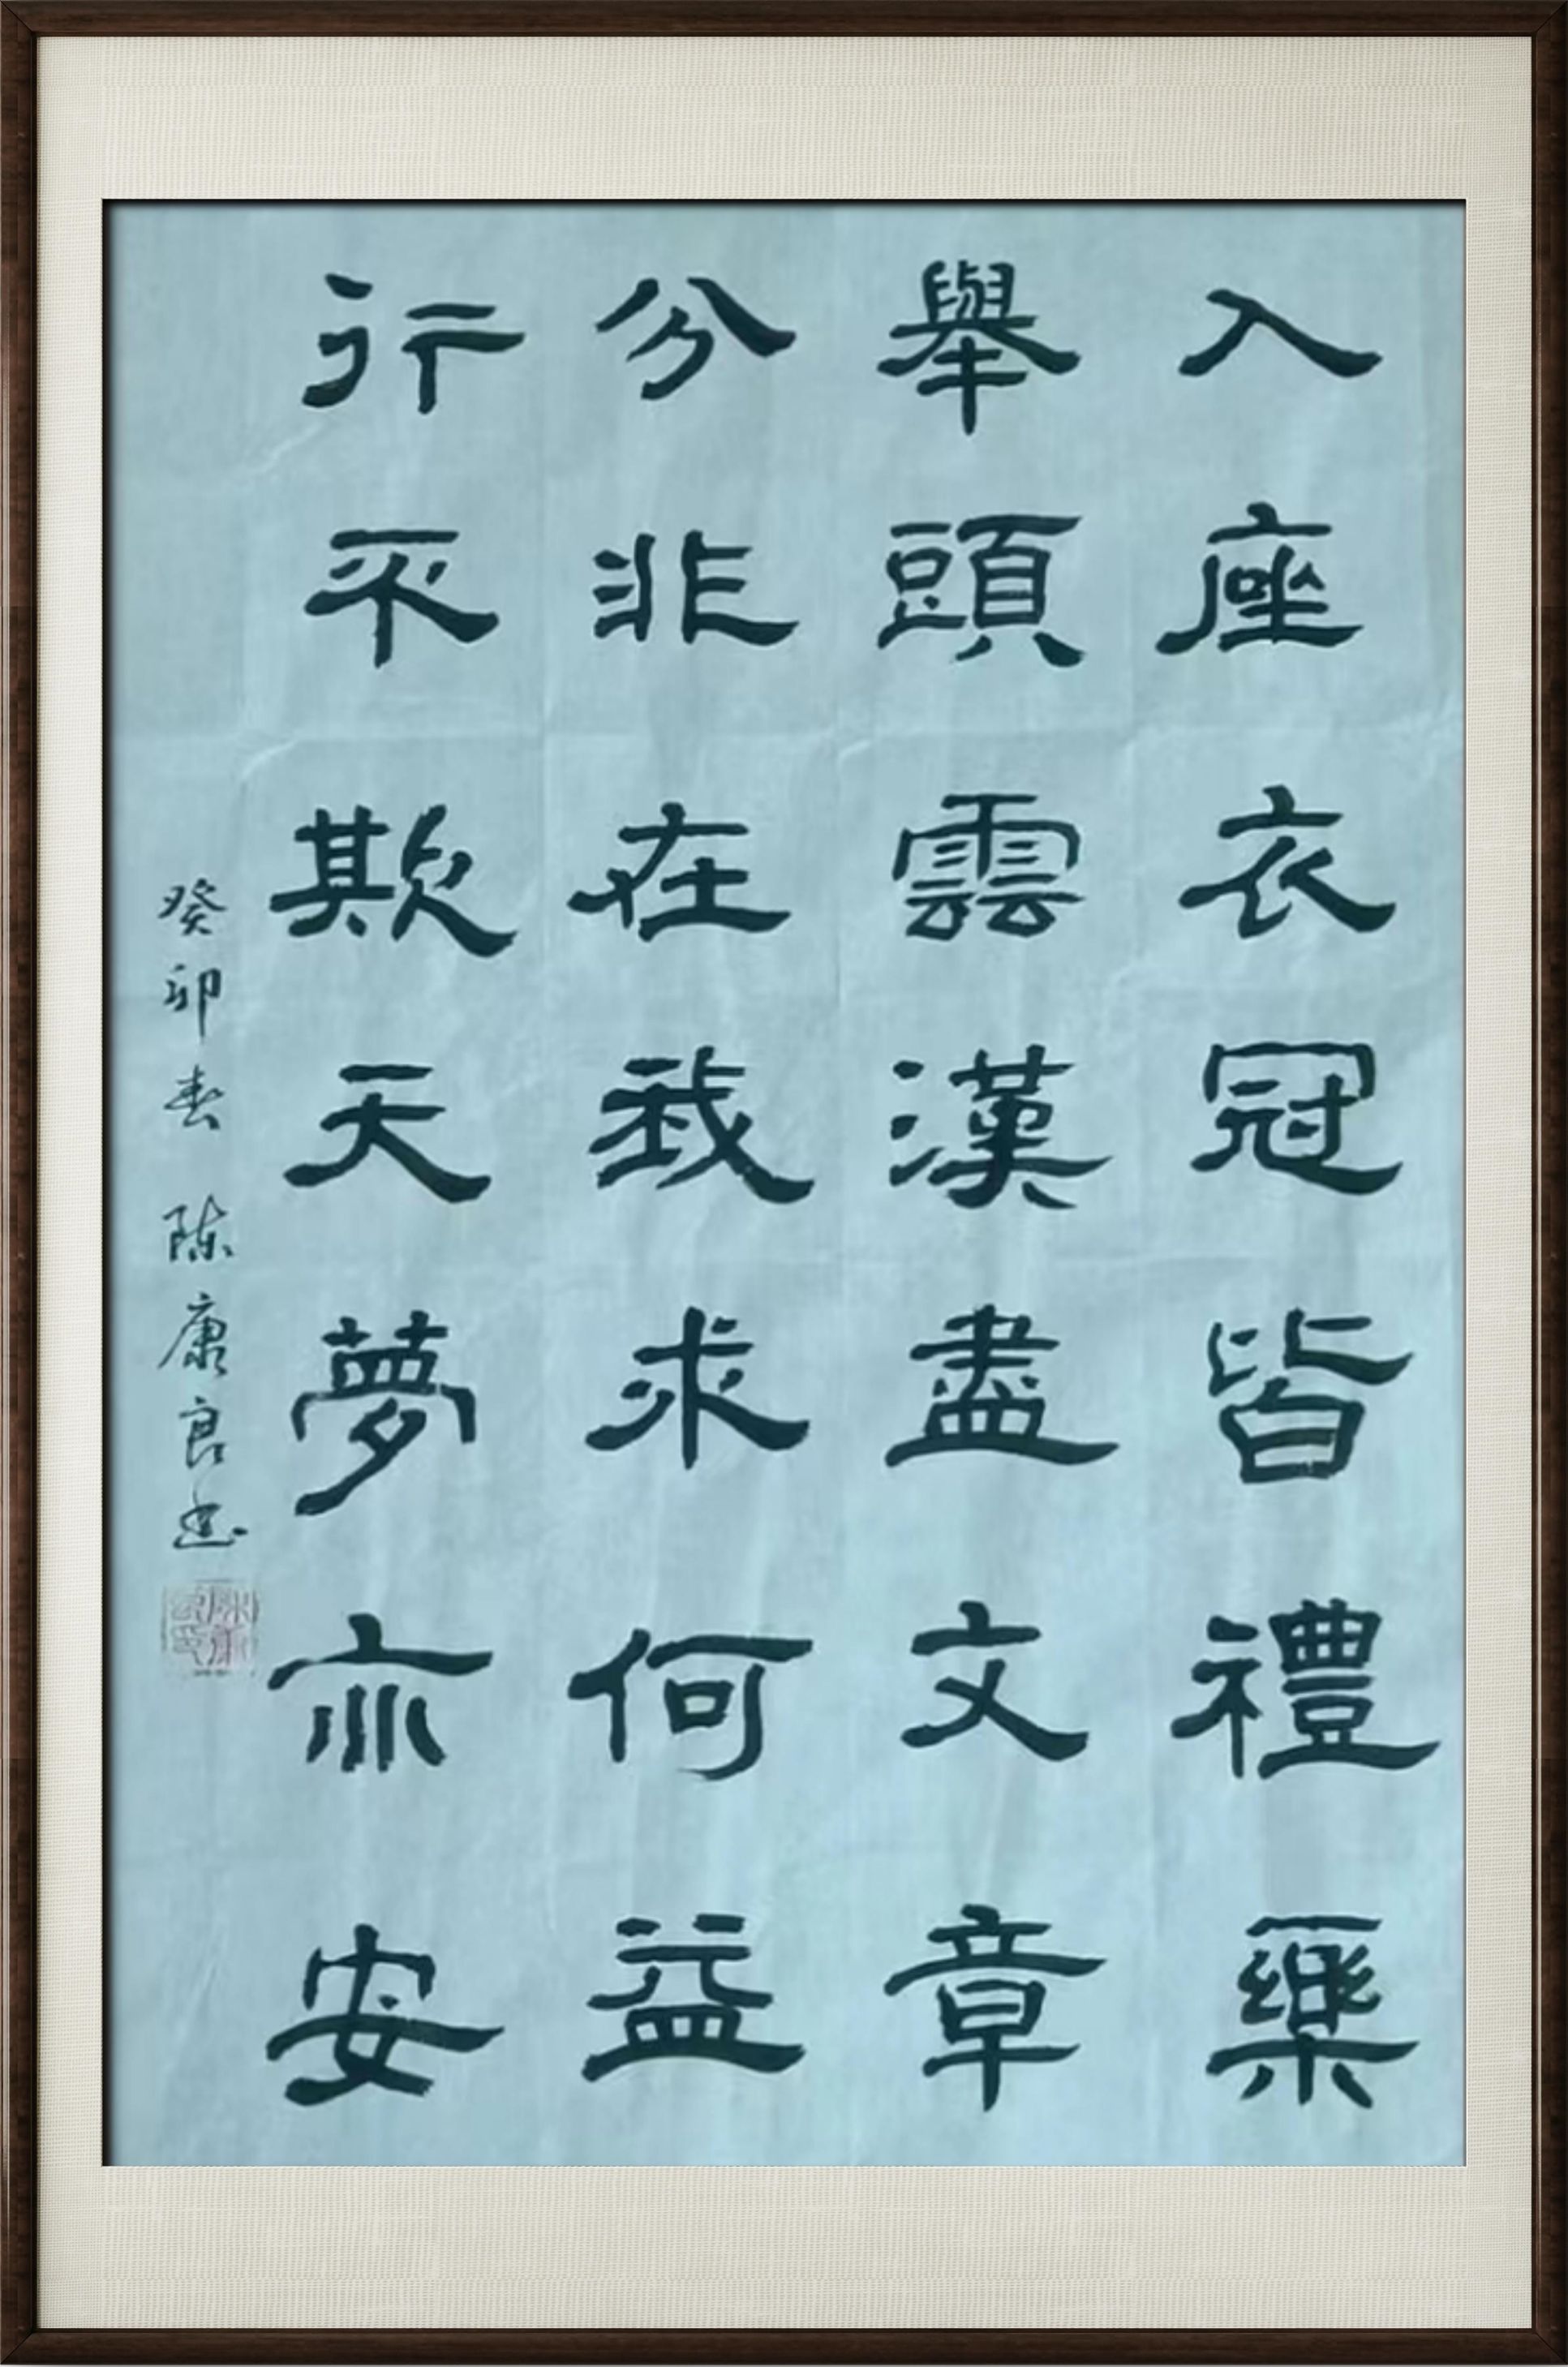 入座衣冠皆禮樂
舉頭雲漢盡文章
分非在我求何益
行不欺天夢亦安
癸卯春 陈康良书